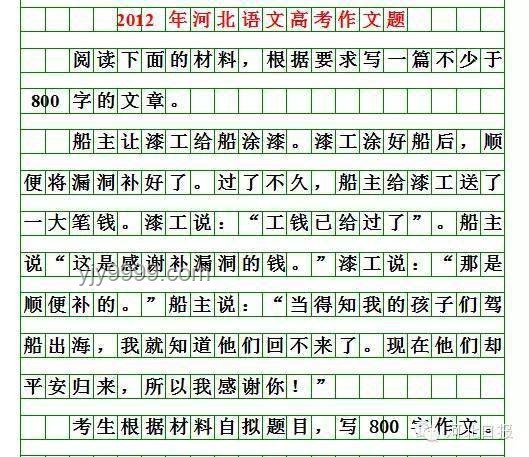 2012 年河北语文高考作文题
阅读下面的材料，根据要求写一篇不少于
800 字的文章。
船主让漆工给船涂漆。漆工涂好船后，顺
便将漏洞补好了。过了不久，船主给漆工送了
一大笔钱。漆工说：“工钱已给过了”。船主
说“这是感谢补漏洞的钱。”漆工说：“那是
顺便补的。”船主说：“当得知我的孩子们驾
船出海，我就知道他们回不来了。现在他们却
平安归来，所以我感谢你！”
考生根据材料自拟题目，写 800 字作文。
yjy9999.com
河北日报